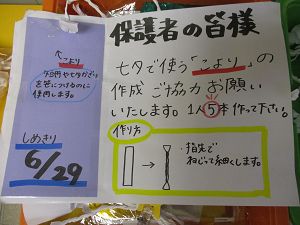 保護者の皆様
七夕で使う「こより」の
作成 ご協力 お願い
いたします。1人⑤本 作って下さい。
作り方
→
・指先で
ねじって細くします。
こより
を笹につけるのに
使用します。
しめきり
6/29